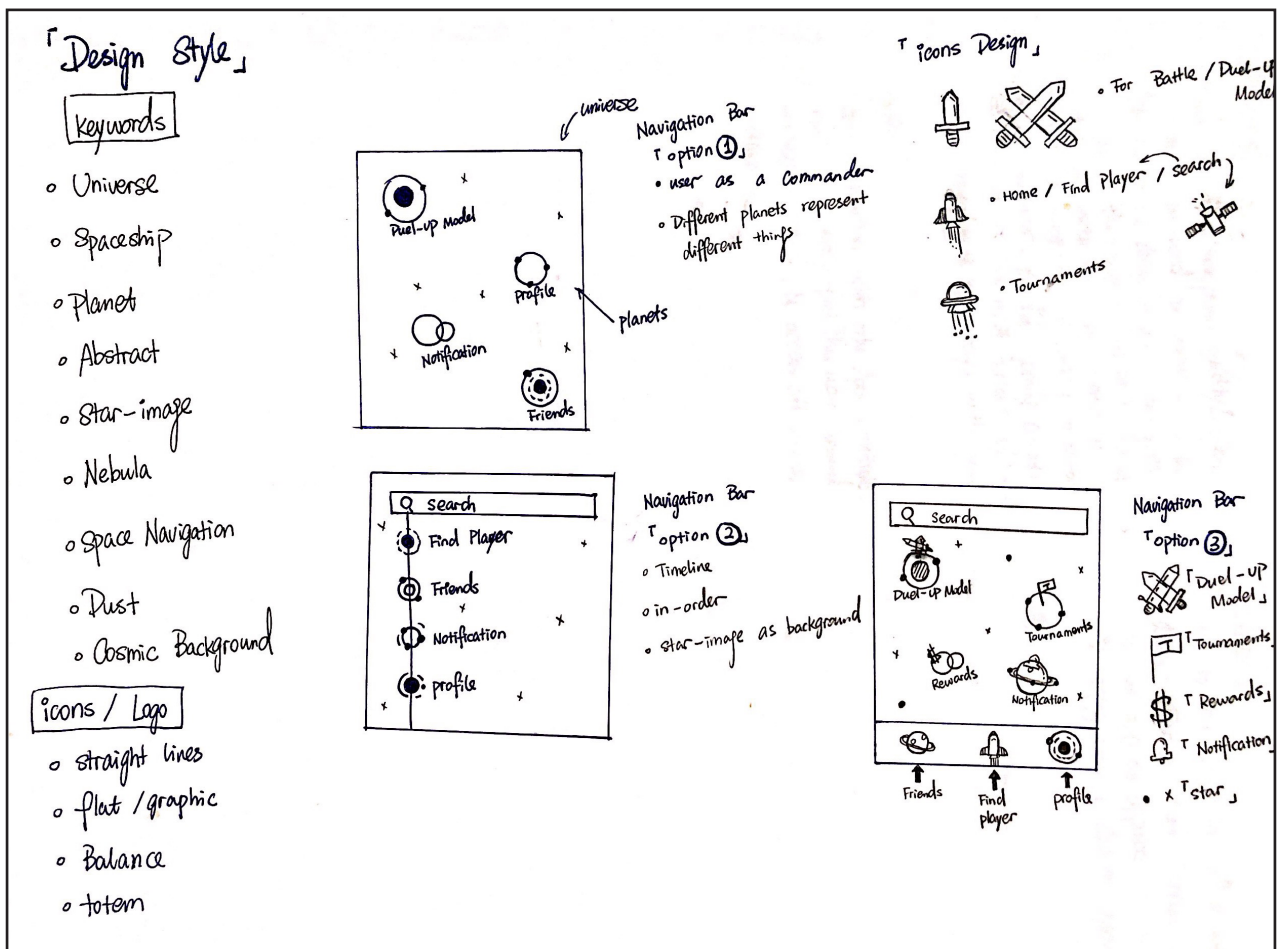 「Design Style」
keywords
Universe
Spaceship
Planet
Abstract
Star-image
Nebula
Space Navigation
Dust
Cosmic Background
icons / Logo
straight lines
flat / graphic
Balance
totem
universe
Duel-up Model
Profile
Notification
Friends
planets
Navigation Bar
「option ①」
user as a Commander
Different planets represent
different things
search
Find Player
Friends
Notification
profile
Navigation Bar
「option ②」
Timeline
in-order
star-image as background
「icons Design」
For Battle / Duel-up
Model
Home / Find Player / search
Tournaments
search
Duel-up Model
Tournaments
Rewards
Notification
Friends
Find
player
profile
Navigation Bar
「option ③」
「Duel-up
Model」
「Tournaments」
$ 「Rewards」
「Notification」
x 「star」